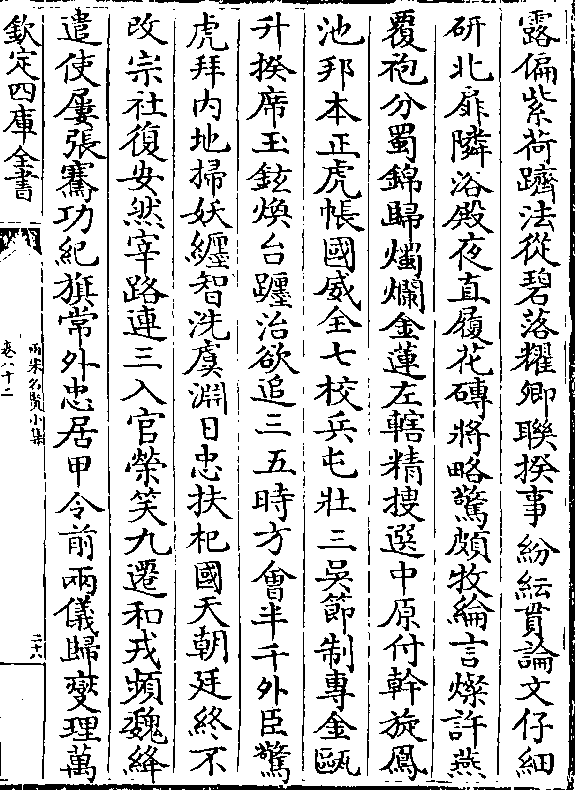 露偏紫荷躋法從碧落耀卿聯揆事紛紜貫論文仔細
研北扉隣浴殿夜直履花磚將略驚頗牧綸言燦許燕
覆袍分蜀錦歸燭爛金蓮左轄精搜選中原付幹旋鳳
池邦本正虎帳國威全七校兵屯壯三吳節制專金甌
升揆席玉鉉煥台躔治欲追三五時方會半千外臣驚
虎拜内地掃妖纒智洗虞淵日忠扶杞國天朝廷終不
改宗社復安然宰路連三入官榮笑九遷和戎頻魏絳
遣使屢張騫功紀旗常外忠居甲令前兩儀歸燮理萬
欽定四庫全書
兩宋名賢小集
卷八十二
二十八